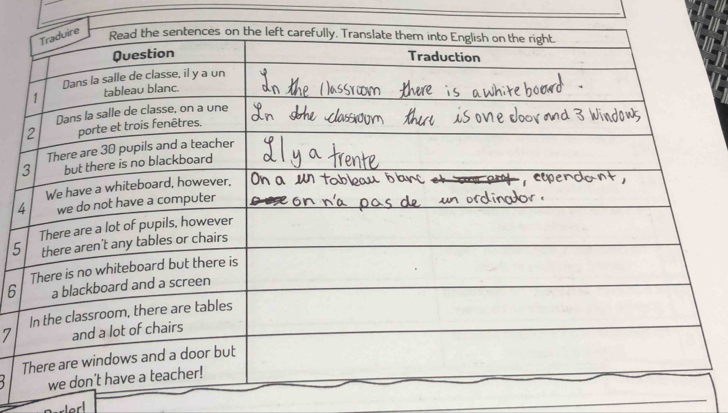 Traduire
Read the sentences on the left carefully. Translate them into English on the right.
Question
Traduction
1
Dans la salle de classe, il y a un
tableau blanc.
In the classroom there is a whiteboard.
2
Dans la salle de classe, on a une
porte et trois fenêtres.
In the classroom there is one door and 3 windows
3
There are 30 pupils and a teacher
but there is no blackboard
Il y a trente
4
We have a whiteboard, however,
we do not have a computer
On a un tableau blanc , cependant,
on n'a pas de un ordinator.
5
There are a lot of pupils, however
there aren't any tables or chairs
6
There is no whiteboard but there is
a blackboard and a screen
7
In the classroom, there are tables
and a lot of chairs
There are windows and a door but
we don't have a teacher!